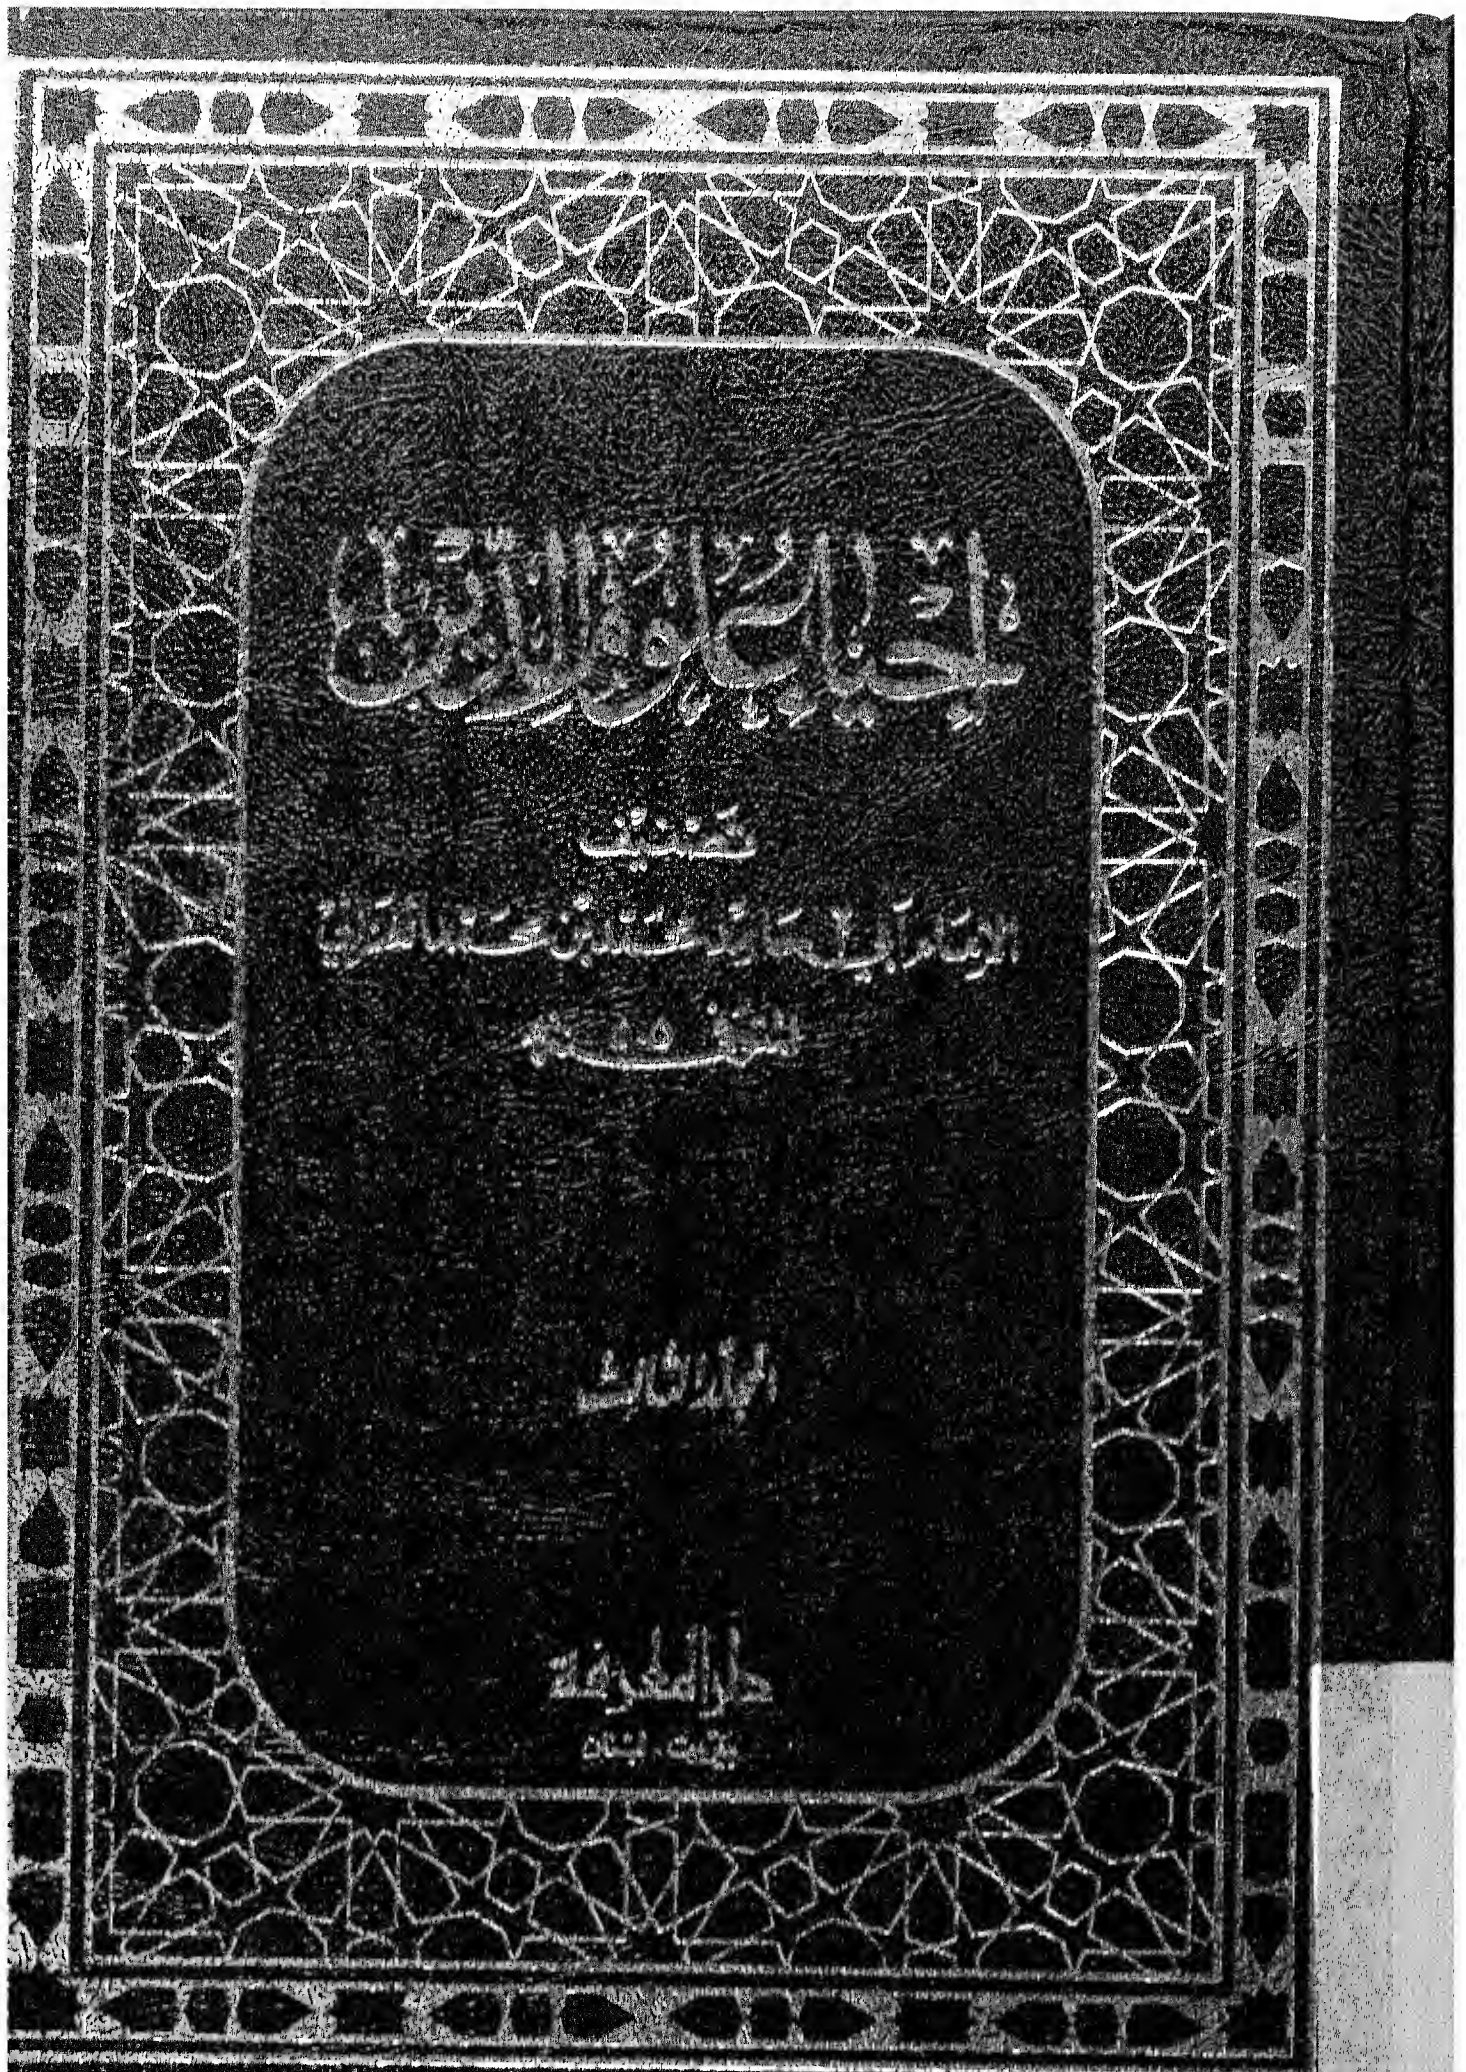 إحياء علوم الدين
تصنيف
الإمام أبي حامد محمد بن محمد الغزالي
المتوفى ٥٠٥ هـ
الجزء الثالث
دار المعرفة
بيروت - لبنان